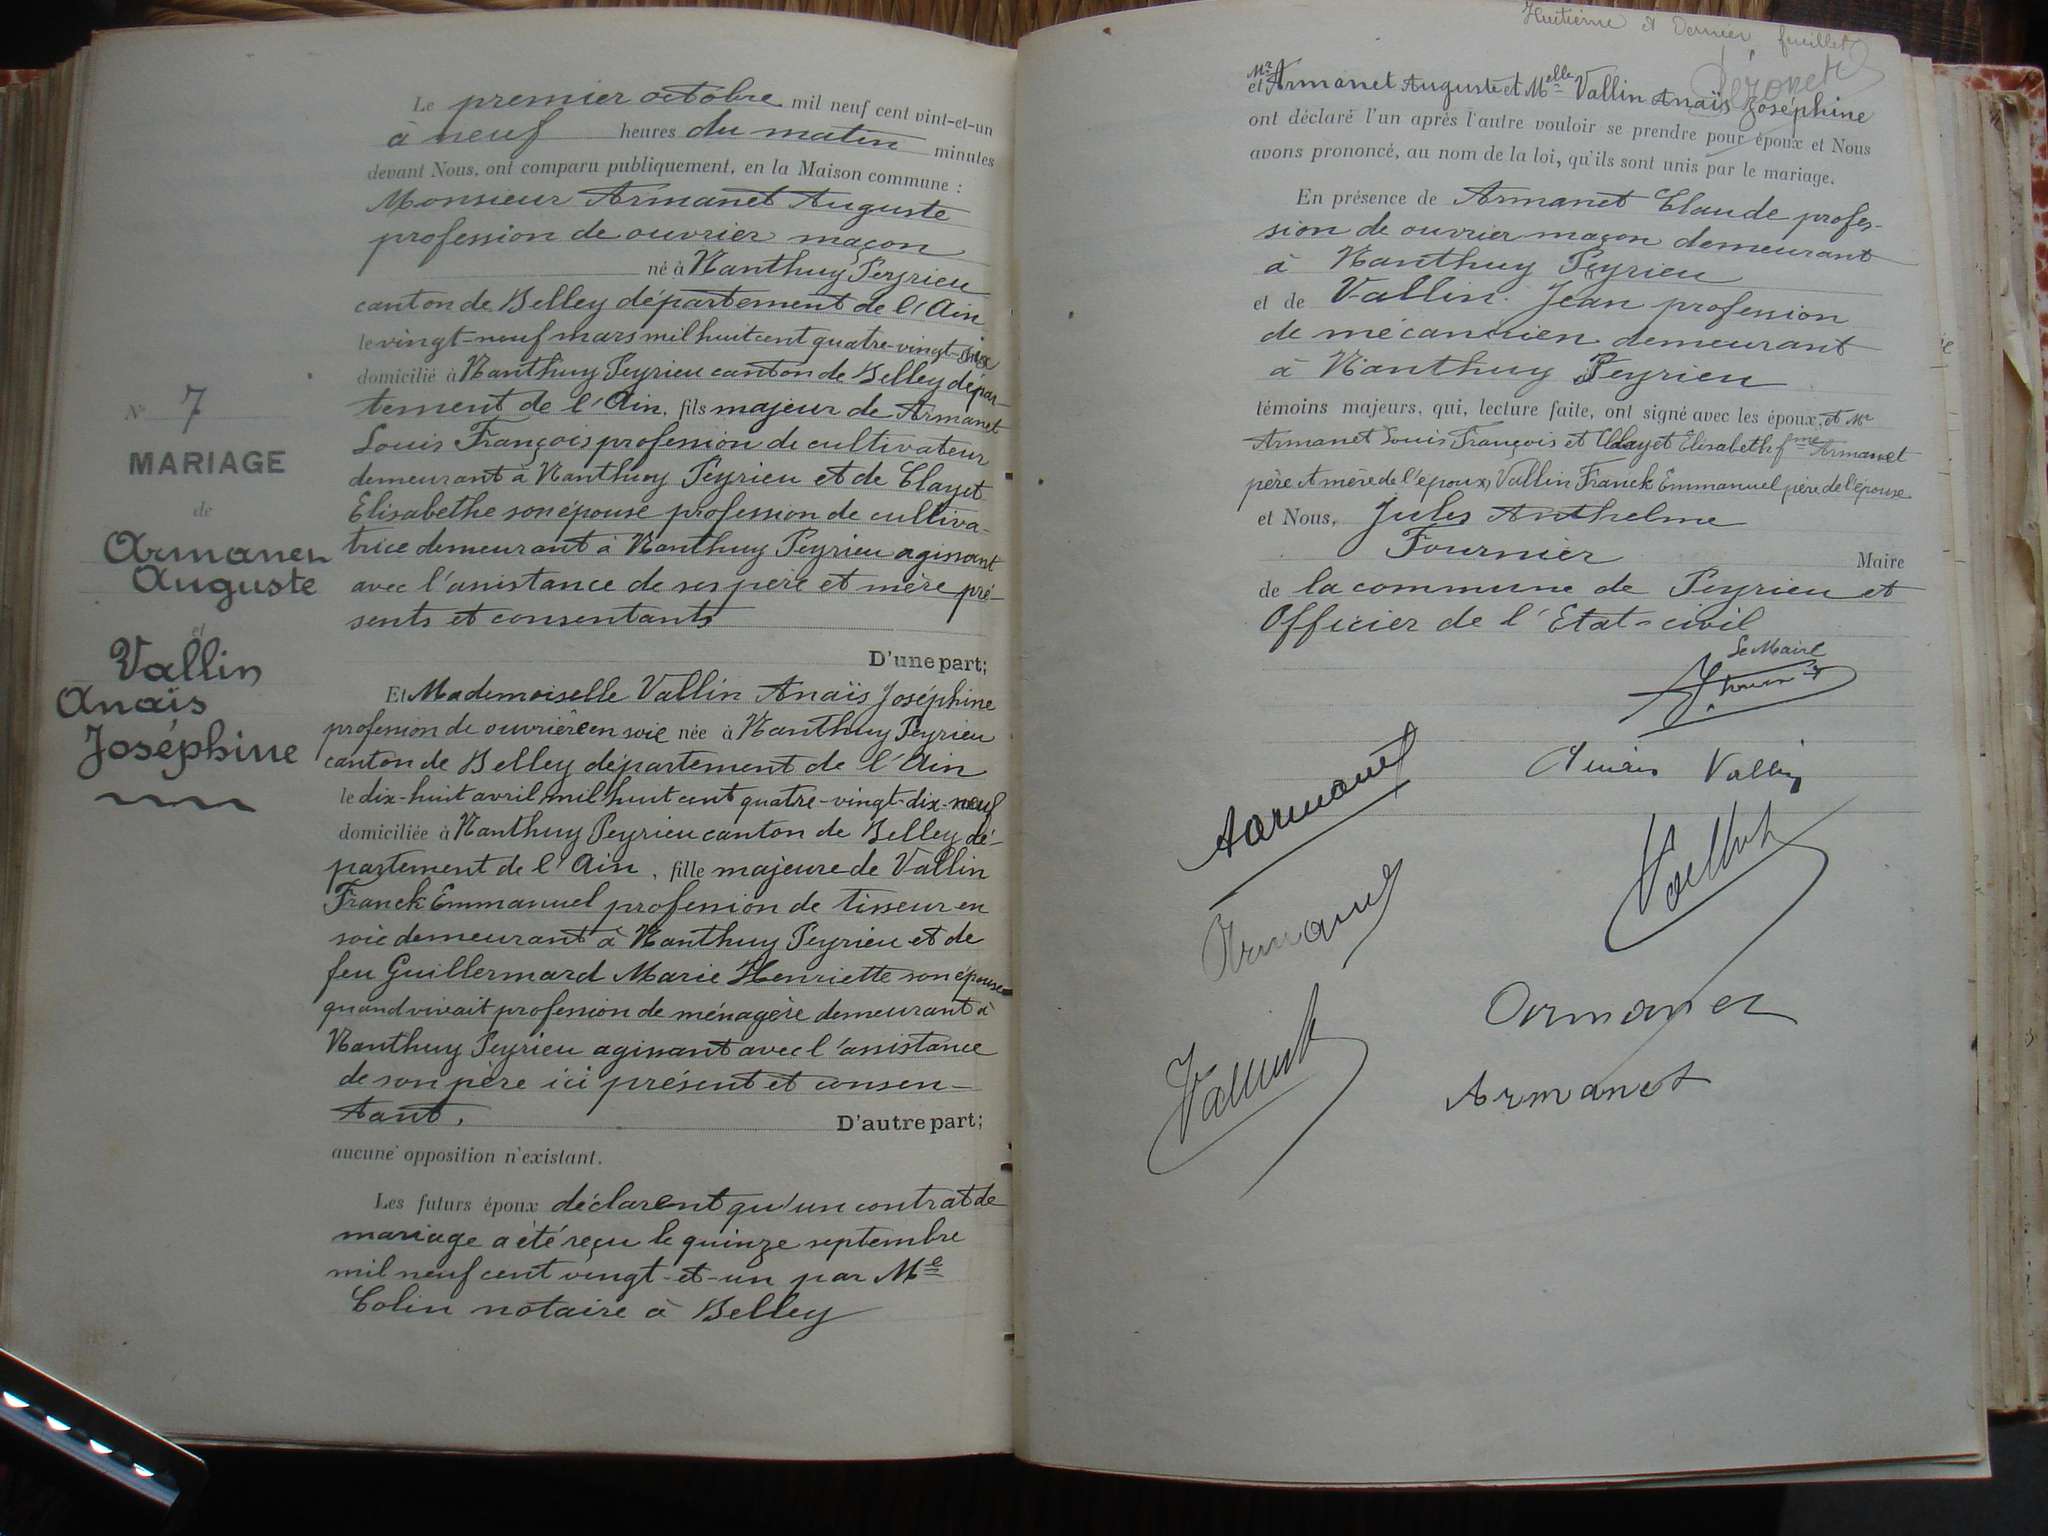 Le premier octobre mil neuf cent vint-et-un
à neuf heures du matin minutes
devant Nous, ont comparu publiquement, en la Maison commune :
Monsieur Armanet Auguste
profession de ouvrier maçon
né à Nanthuy Peyrieu
canton de Belley département de l'Ain
le vingt-neuf mars mil huit cent quatre-vingt-
domicilié à Nanthuy Peyrieu canton de Belley dépar-
tement de l'Ain, fils majeur de Armanet
Louis François profession de cultivateur
demeurant à Nanthuy Peyrieu et de Clayet
Elisabethe son épouse profession de cultiva-
trice demeurant à Nanthuy Peyrieu agissant
avec l'assistance de ses père et mère pré-
sents et consentants
D'une part;
N° 7
MARIAGE
de
Armanet
Auguste
et
Vallin
Anaïs
Joséphine
Et Mademoiselle Vallin Anaïs Joséphine
profession de ouvrière en soie née à Nanthuy Peyrieu
canton de Belley département de l'Ain
le dix-huit avril mil huit cent quatre-vingt-dix-neuf
domiciliée à Nanthuy Peyrieu canton de Belley dé-
partement de l'Ain, fille majeure de Vallin
Franck Emmanuel profession de tisseur en
soie demeurant à Nanthuy Peyrieu et de
feu Guillermard Marie Henriette son épouse
quand vivait profession de ménagère demeurant à
Nanthuy Peyrieu agissant avec l'assistance
de son père ici présent et consen-
tant.
D'autre part;
aucune opposition n'existant.
Les futurs époux déclarent qu'un contrat de
mariage a été reçu le quinze septembre
mil neuf cent vingt-et-un par Me
Colin notaire à Belley
Huitième et Dernier feuillet
Mr
et Armanet Auguste et Melle Vallin Anaïs Joséphine
ont déclaré l'un après l'autre vouloir se prendre pour époux et Nous
avons prononcé, au nom de la loi, qu'ils sont unis par le mariage.
En présence de Armanet Claude profes-
sion de ouvrier maçon demeurant
à Nanthuy Peyrieu
et de Vallin Jean profession
de mécanicien demeurant
à Nanthuy Peyrieu
témoins majeurs, qui, lecture faite, ont signé avec les époux, et Mr
Armanet Louis François et Clayet Elisabeth fme Armanet
père et mère de l'époux, Vallin Franck Emmanuel père de l'épouse
et Nous, Jules Anthelme
Fournier Maire
de la commune de Peyrieu et
Officier de l'Etat-civil
Le Maire
Armanet
Vallin
Armanet
Armanet
Armanet